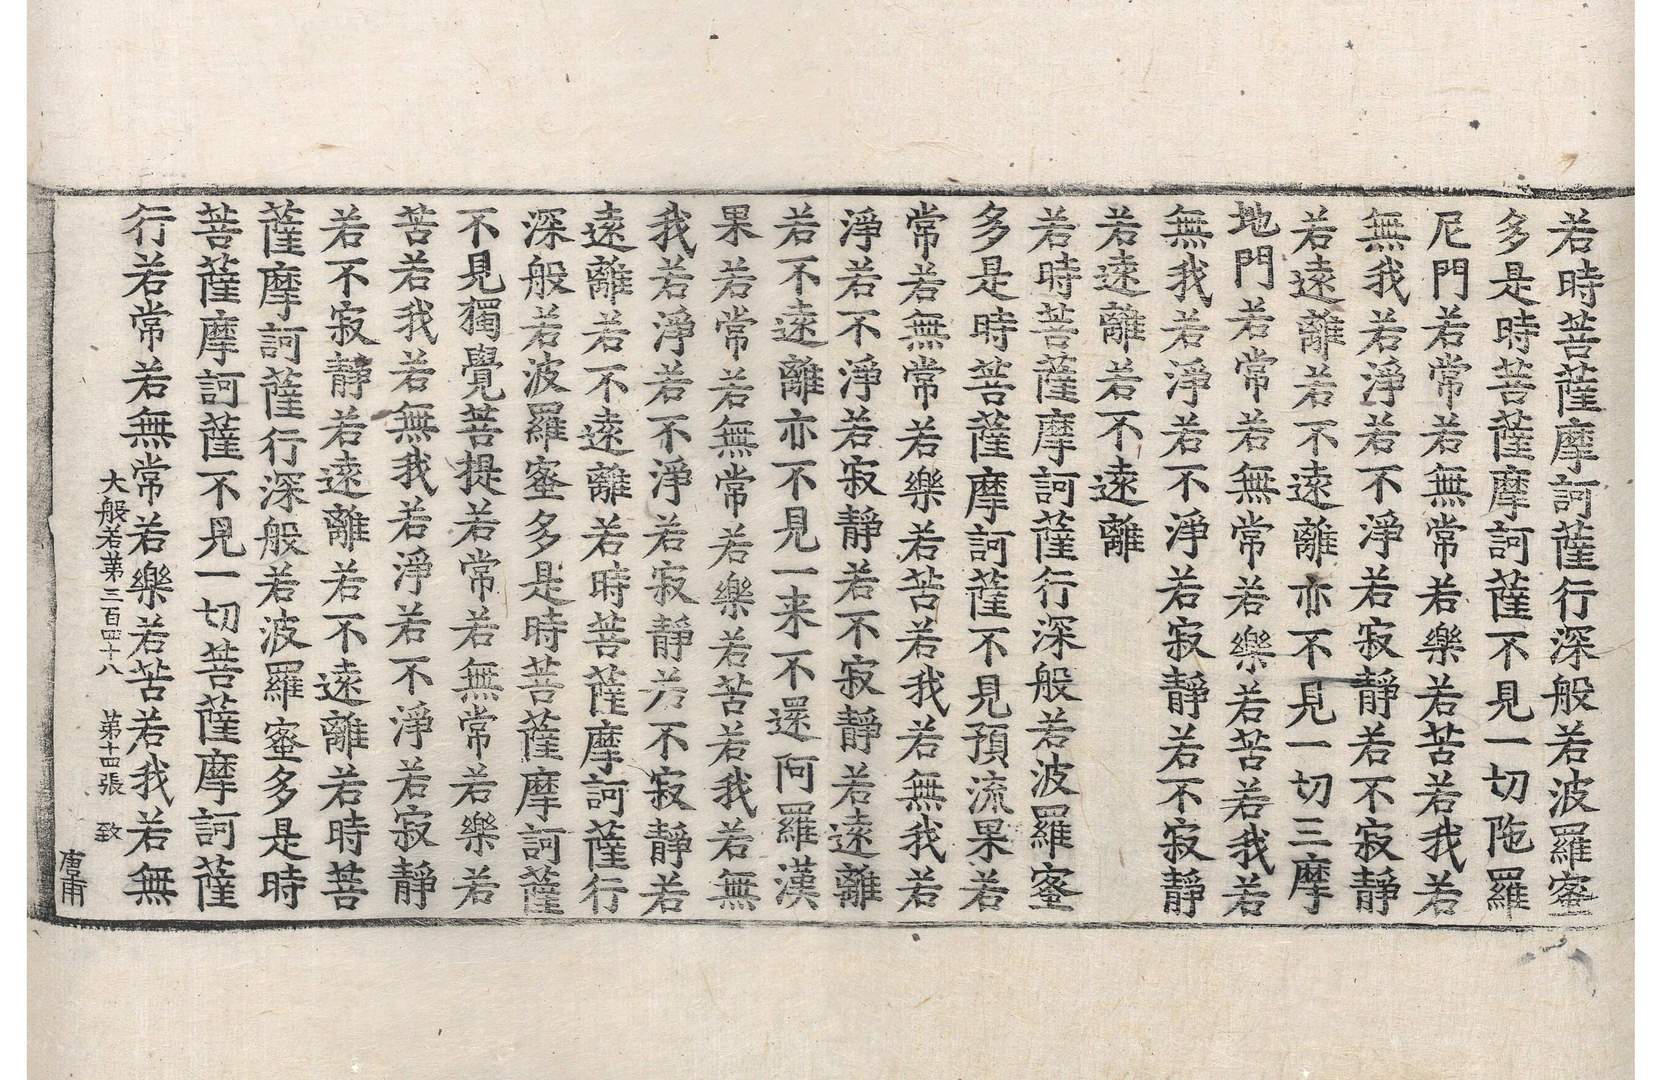 若時菩薩摩訶薩行深般若波羅蜜
多是時菩薩摩訶薩不見一切陁羅
尼門若常若無常若樂若苦若我若
無我若淨若不淨若寂靜若不寂靜
若遠離若不遠離亦不見一切三摩
地門若常若無常若樂若苦若我若
無我若淨若不淨若寂靜若不寂靜
若遠離若不遠離
若時菩薩摩訶薩行深般若波羅蜜
多是時菩薩摩訶薩不見預流果若
常若無常若樂若苦若我若無我若
淨若不淨若寂靜若不寂靜若遠離
若不遠離亦不見一来不還阿羅漢
果若常若無常若樂若苦若我若無
我若淨若不淨若寂靜若不寂靜若
遠離若不遠離若時菩薩摩訶薩行
深般若波羅蜜多是時菩薩摩訶薩
不見獨覺菩提若常若無常若樂若
苦若我若無我若淨若不淨若寂靜
若不寂靜若遠離若不遠離若時菩
薩摩訶薩行深般若波羅蜜多是時
菩薩摩訶薩不見一切菩薩摩訶薩
行若常若無常若樂若苦若我若無
大般若第三百四十八 第十四張 致
唐甫